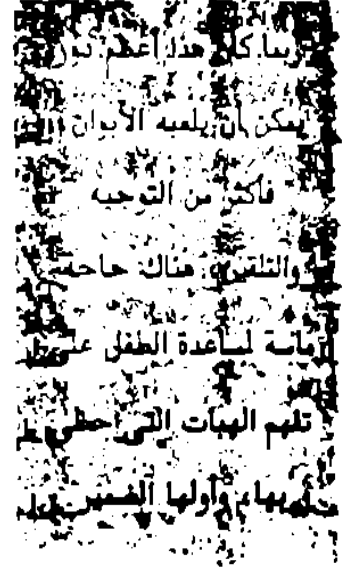 ربما كان هذا أعظم دور
يمكن أن يلعبه الأبوان
فأكثر من التوجيه
والتلقين هناك حاجة
ماسة لمساعدة الطفل على
تفهم الهبات التي حظي
بها وأولها الضمير